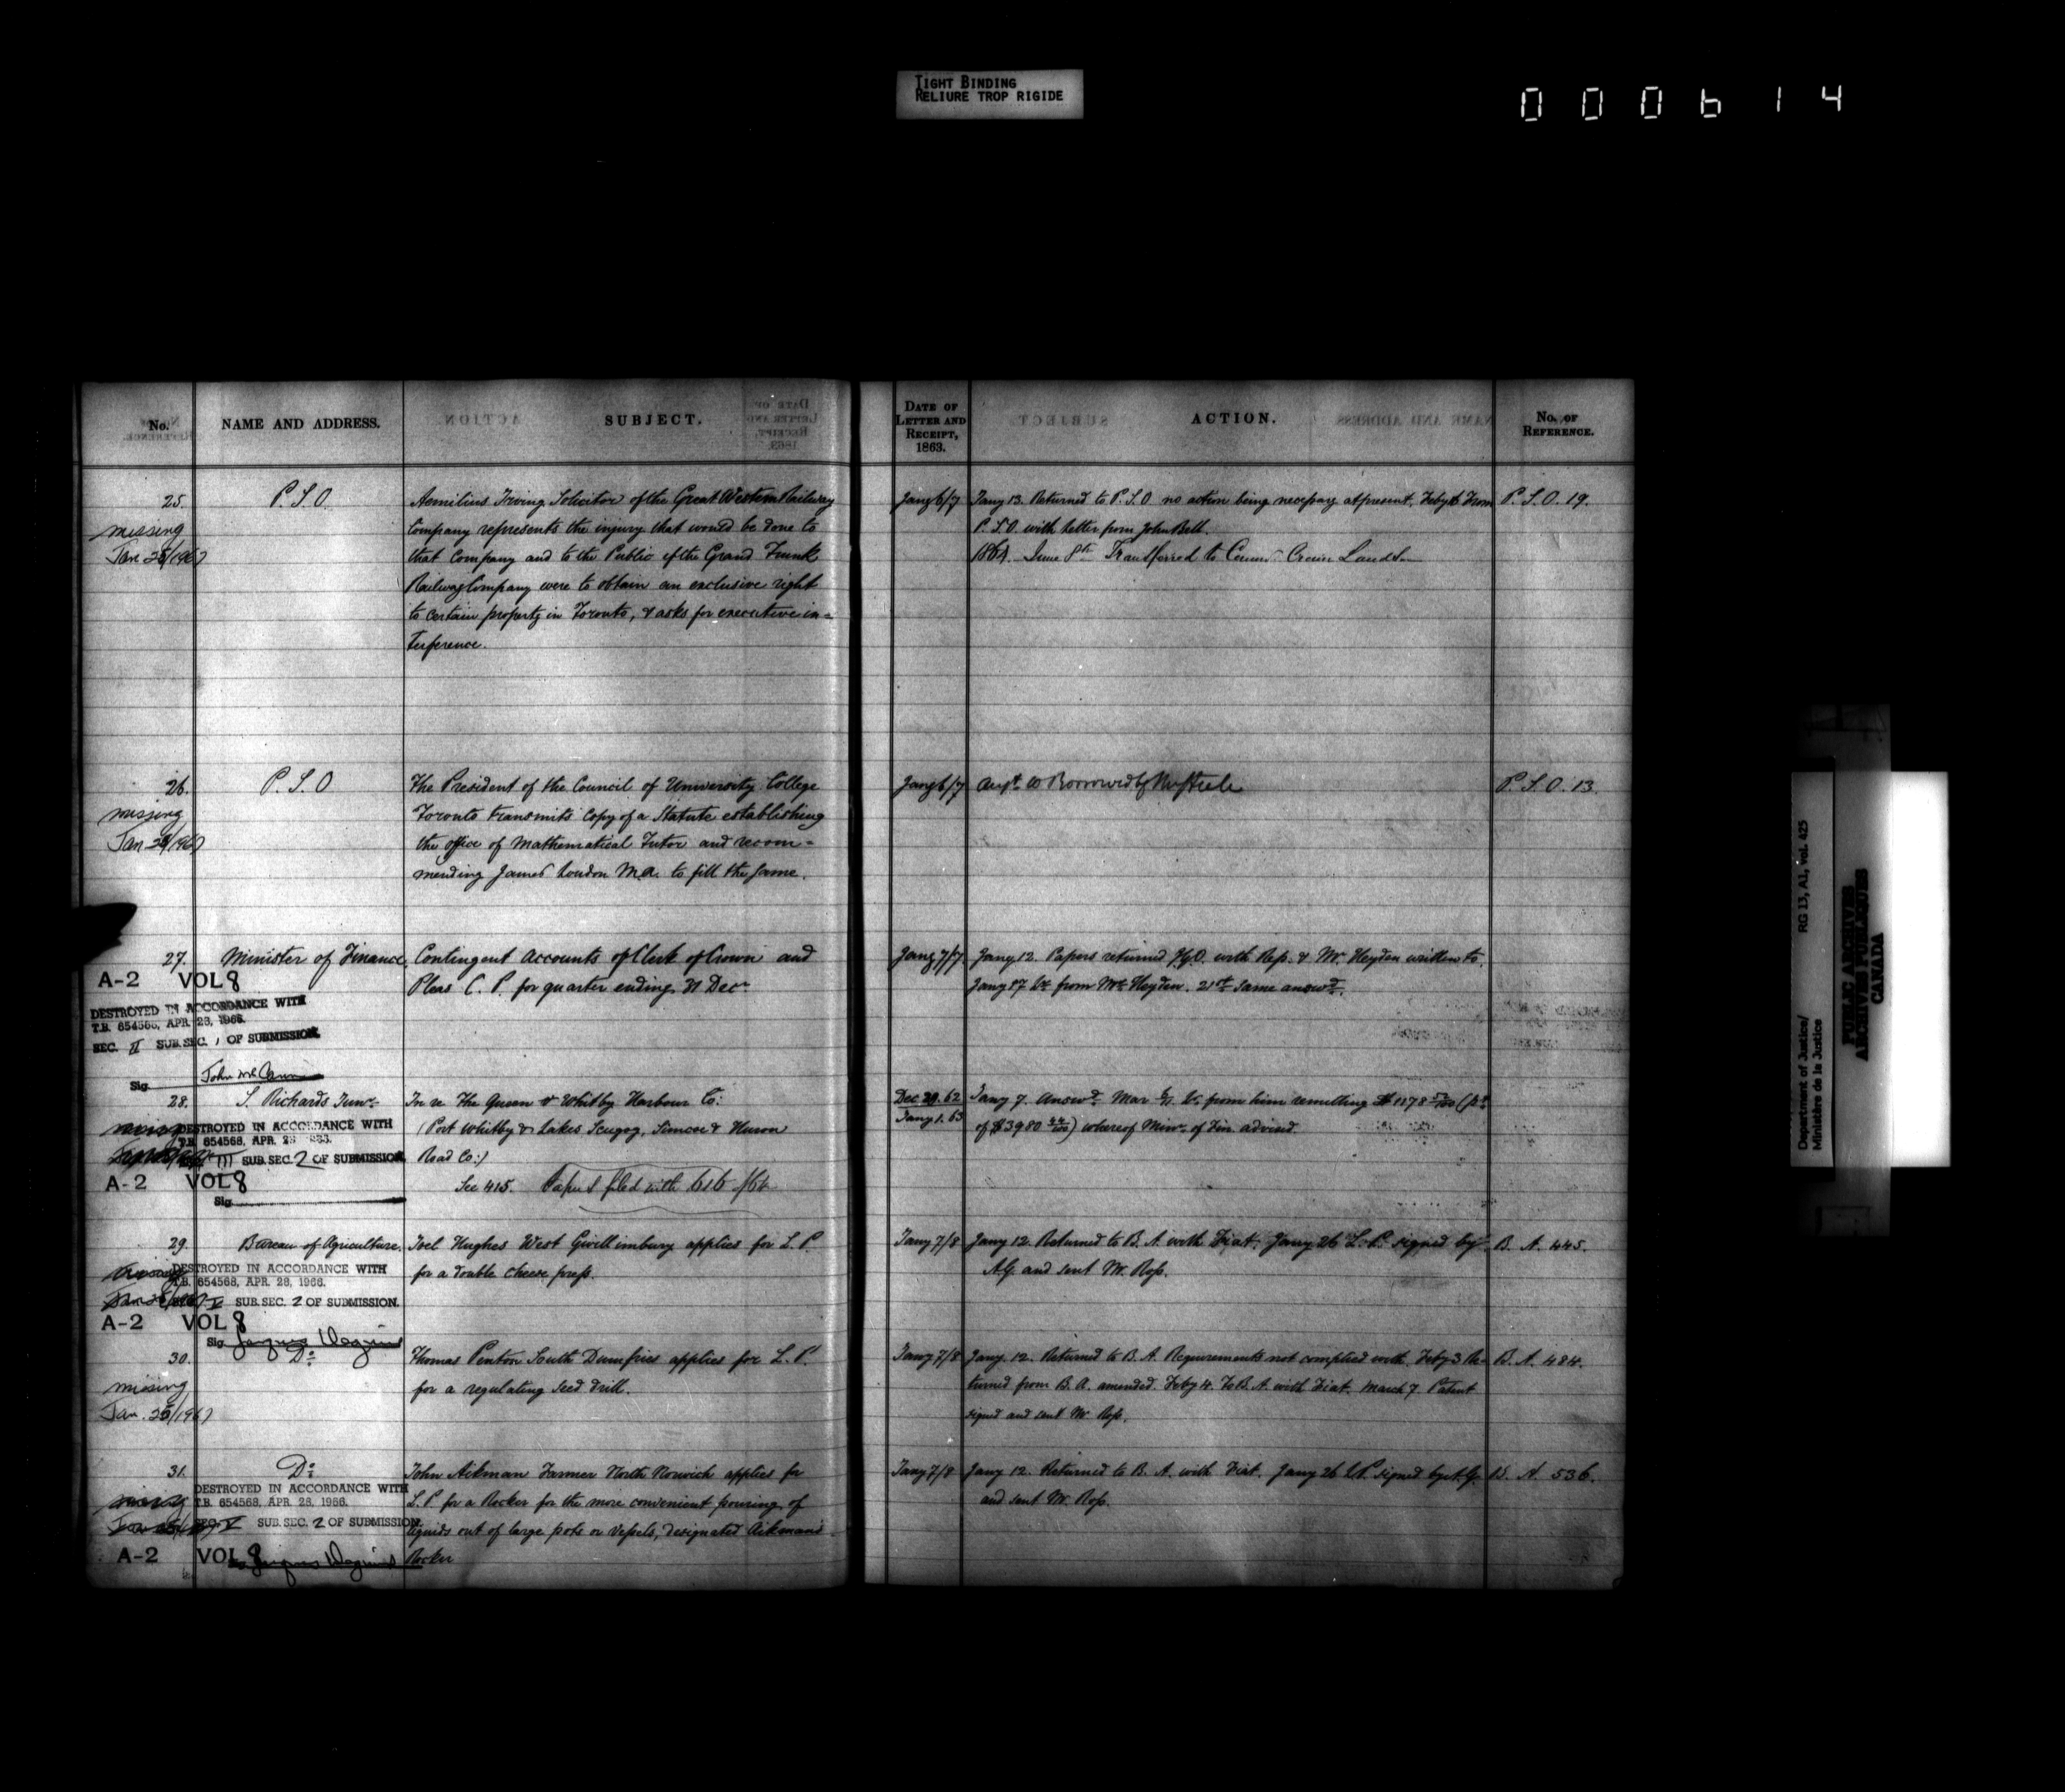 TIGHT BINDING
RELIURE TROP RIGIDE
000614
No. NAME AND ADDRESS. SUBJECT.
25. P.S.O. Aemilius Irving Solicitor of the Great Western Railway
missing Company represents the injury that would be done to
Jan 25/1967 that Company and to the Public if the Grand Trunk
Railway Company were to obtain an exclusive right
to certain property in Toronto, & asks for executive in=
terference.
26. P.S.O The President of the Council of University College
missing Toronto transmits Copy of a Statute establishing
Jan 25/1967 the office of Mathematical Tutor and recom=
mending James Loudon M.A. to fill the same.
27. Minister of Finance, Contingent Accounts of Clerk of Crown and
A-2 VOL 8 Pleas C. P. for quarter ending 31 Decr
DESTROYED IN ACCORDANCE WITH
T.B. 654568, APR. 28, 1966.
SEC. II SUB.SEC. 1 OF SUBMISSION.
Sig. John McCann
28. S. Richards Junr. In re The Queen & Whitby Harbour Co:
DESTROYED IN ACCORDANCE WITH (Port Whitby & Lakes Scugog, Simcoe & Huron
T.B. 654568, APR. 28
III SUB.SEC. 2 OF SUBMISSION. Road Co:)
A-2 VOL 8 See 415. Papers filed with 616/64
Sig.
29. Bureau of Agriculture. Joel Hughes West Gwillimbury applies for L.P.
DESTROYED IN ACCORDANCE WITH for a double cheese press.
T.B. 654568, APR. 28, 1966.
V SUB.SEC. 2 OF SUBMISSION.
A-2 VOL 8
Sig.
30. Do Thomas Penton South Dumfries applies for L.P.
missing for a regulating seed drill.
Jan. 25/1967
31. Do John Aikman Farmer North Norwich applies for
DESTROYED IN ACCORDANCE WITH L.P. for a Rocker for the more convenient pouring of
T.B. 654568, APR. 28, 1966.
SEC. V SUB.SEC. 2 OF SUBMISSION. liquids out of large pots or vessels, designated Aikman's
A-2 VOL 8 Rocker
DATE OF LETTER AND RECEIPT, 1863. ACTION. No. OF REFERENCE.
Jany 6/7 Jany 13. Returned to P.S.O. no action being necessary at present. Feby 6 From P.S.O. 19.
P.S.O. with letter from John Bell.
1864. June 8th Transferred to Comr. Crown Lands
Jany 6/7 Borrowed by P.S.O. 13.
Jany 7/7 Jany 12. Papers returned with Rep. & Mr. Heyden written to.
Jany 17 Lr. from Mr. Heyden. 21st same answd.
Dec 29. 62 Jany 7. Answd. Mar Lr. from him remitting $1178 52/100 (pt.
Jany 1. 63 of $3980) whereof Minr. of Fin advised.
Jany 7/8 Jany 12. Returned to B.A. with Fiat. Jany 26 L.P. signed by B.A. 445.
AG. and sent Mr. Ross.
Jany 7/8 Jany. 12. Returned to B.A. Requirements not complied with. Feby 3 Re= B.A. 484.
turned from B.A. amended. Feby 4. To B.A. with Fiat. March 7. Patent
signed and sent Mr Ross.
Jany 7/8 Jany 12. Returned to B.A. with Fiat. Jany 26 L.P. signed by A.G. B.A. 536.
and sent Mr. Ross.
Department of Justice/ RG 13, A1, vol. 425
Ministère de la Justice
PUBLIC ARCHIVES
ARCHIVES PUBLIQUES
CANADA